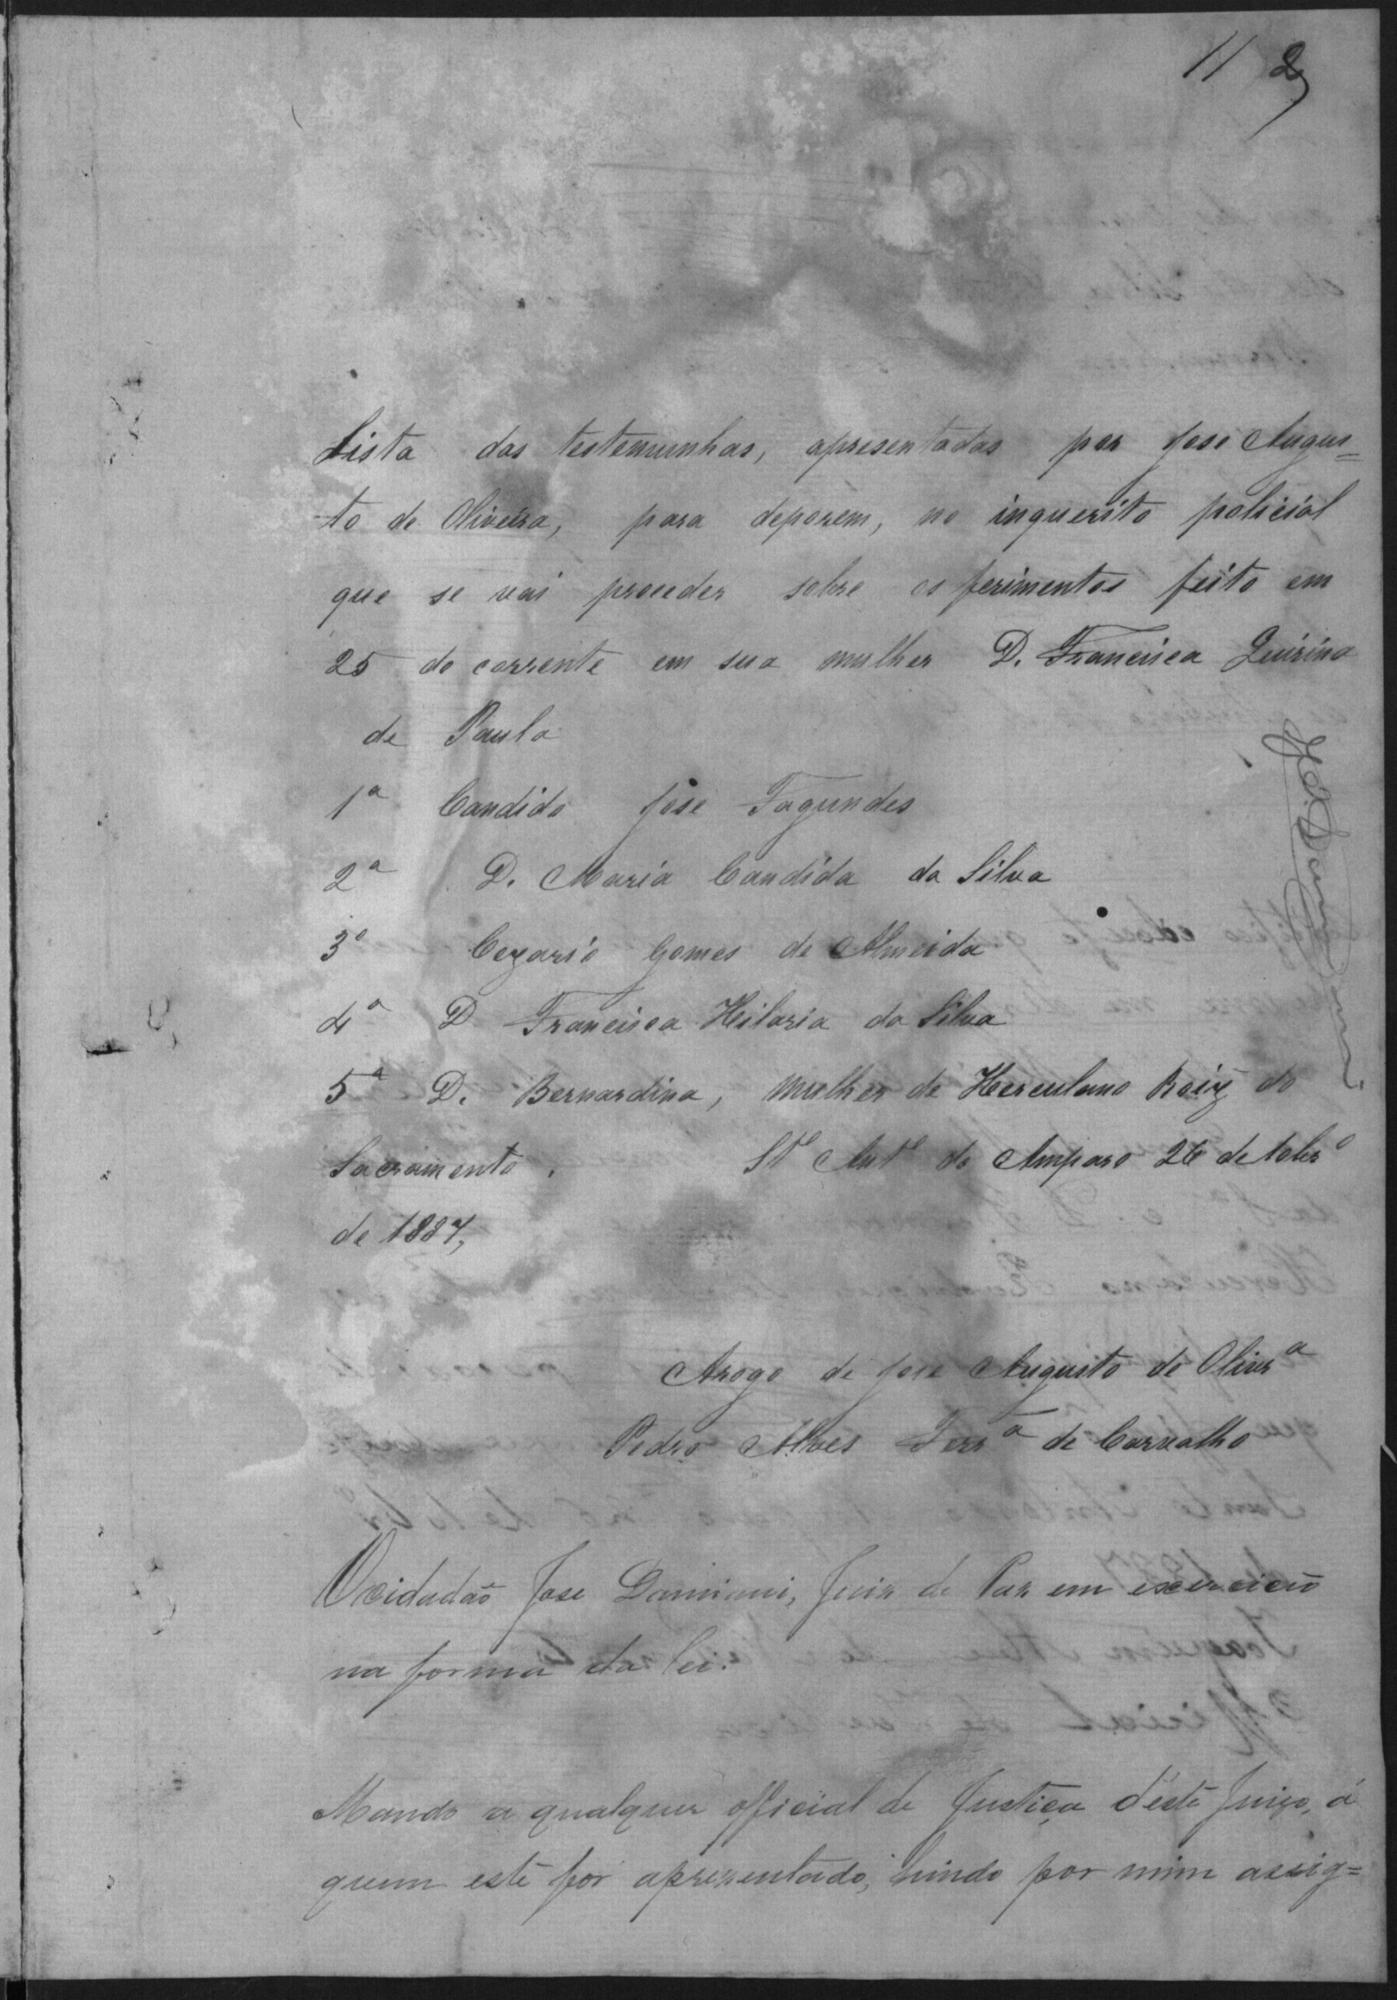 11 2
Lista das testemunhas, apresentadas por José Augus=
to de Oliveira, para deporem, no inquerito policial
que se vai proceder sobre os ferimentos feito em
25 do corrente em sua mulher D. Francisca Quirina
de Paula
1ª Candido José Fagundes
2ª D. Maria Candida da Silva
3º Cezario Gomes de Almeida
4ª D Francisca Hilaria da Silva
5ª D. Bernardina, mulher de Herculano Roiz do
Sacramento. Stº Antº do Amparo 26 de 
de 1887,
Arogo de José Augusto de Olivrª
Pedro Alves Ferrª de Carvalho
O cidadão José Damiani, Juiz de Paz em exercicio
na forma da lei.
Mando a qualquer official de Justiça d'este Juizo, á
quem este for aprezentado, hindo por mim assig=